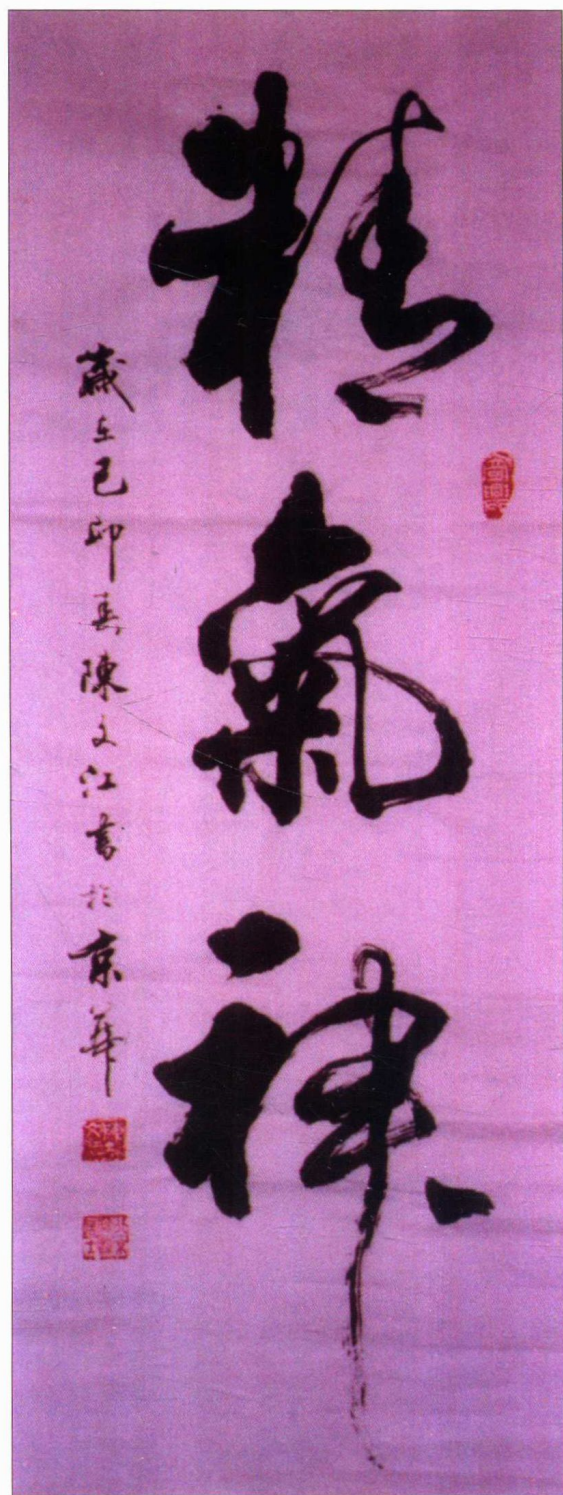 精氣神
歲在己卯春陳文江書於京華